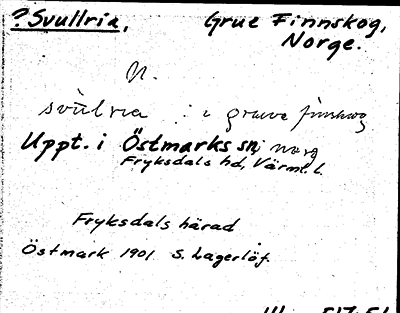 ? Svullria, Grue Finnskog,
Norge.
N.
svulria : i grue finskog
Uppt. i Östmarks sn, norg
Fryksdals hd, Värml. l.
Fryksdals härad
Östmark 1901 S. Lagerlöf.